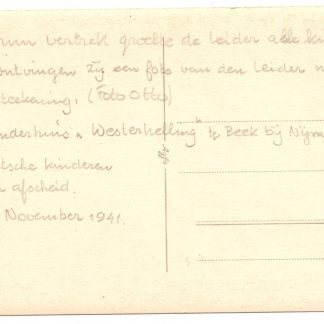 vertrek groetje de leider alle
ontvingen zy een foto van den leider
teekening. (Foto Otto)
"Westerhelling" te Beek bij Nijm
tsche kinderen
afscheid.
November 1941.